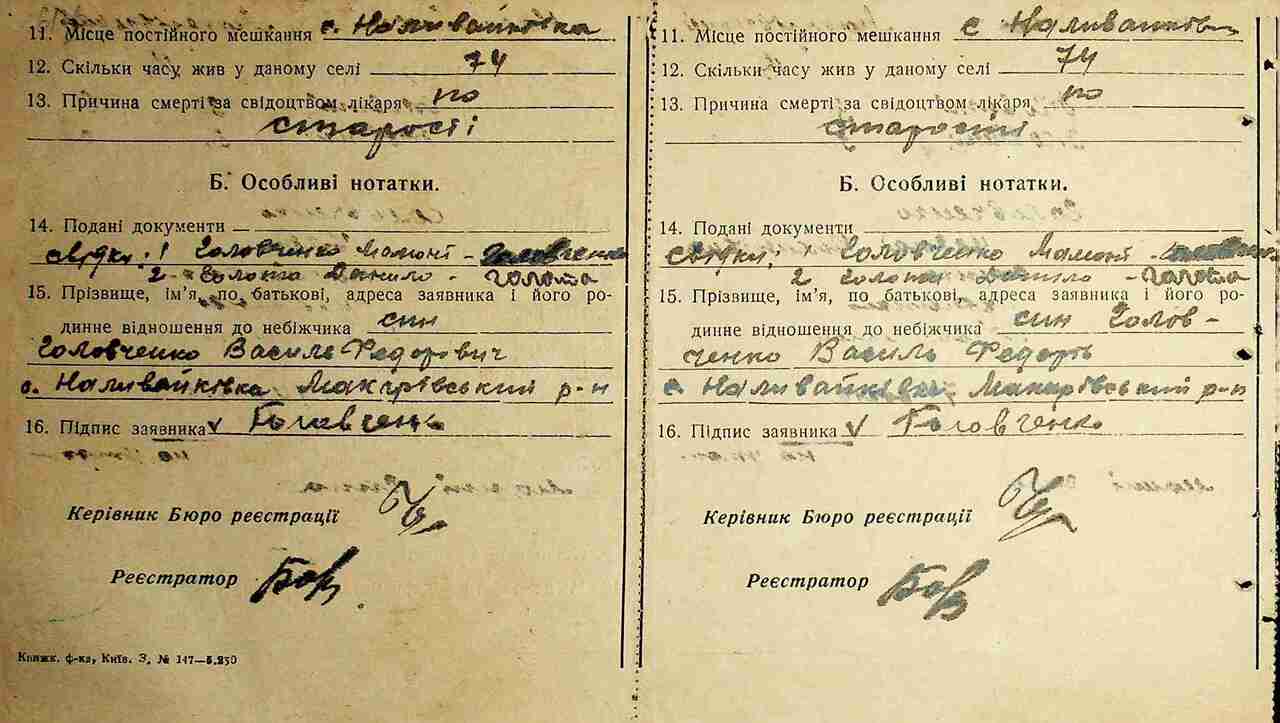 11. Місце постійного мешкання с. Наливайківка
12. Скільки часу жив у даному селі 74
13. Причина смерті за свідоцтвом лікаря по
старості
Б. Особливі нотатки.
14. Подані документи
свідки: 1 Головченко Мамонт - Головченко
2 - Голота Данило - Голота
15. Прізвище, ім'я, по батькові, адреса заявника і його ро-
динне відношення до небіжчика син
Головченко Василь Федорович
с. Наливайківка Макарівський р-н
16. Підпис заявника v Головченко
Керівник Бюро реєстрації
Реєстратор
Книжк. ф-ка, Київ. З. № 147—5.250
11. Місце постійного мешкання с Наливайків
12. Скільки часу жив у даному селі 74
13. Причина смерті за свідоцтвом лікаря по
старості
Б. Особливі нотатки.
14. Подані документи
свідки: Головченко Мамонт -
2 Голота Данило - Голота
15. Прізвище, ім'я, по батькові, адреса заявника і його ро-
динне відношення до небіжчика син Голов-
ченко Василь Федорів
с. Наливайківка Макарівський р-н
16. Підпис заявника v Головченко
Керівник Бюро реєстрації
Реєстратор